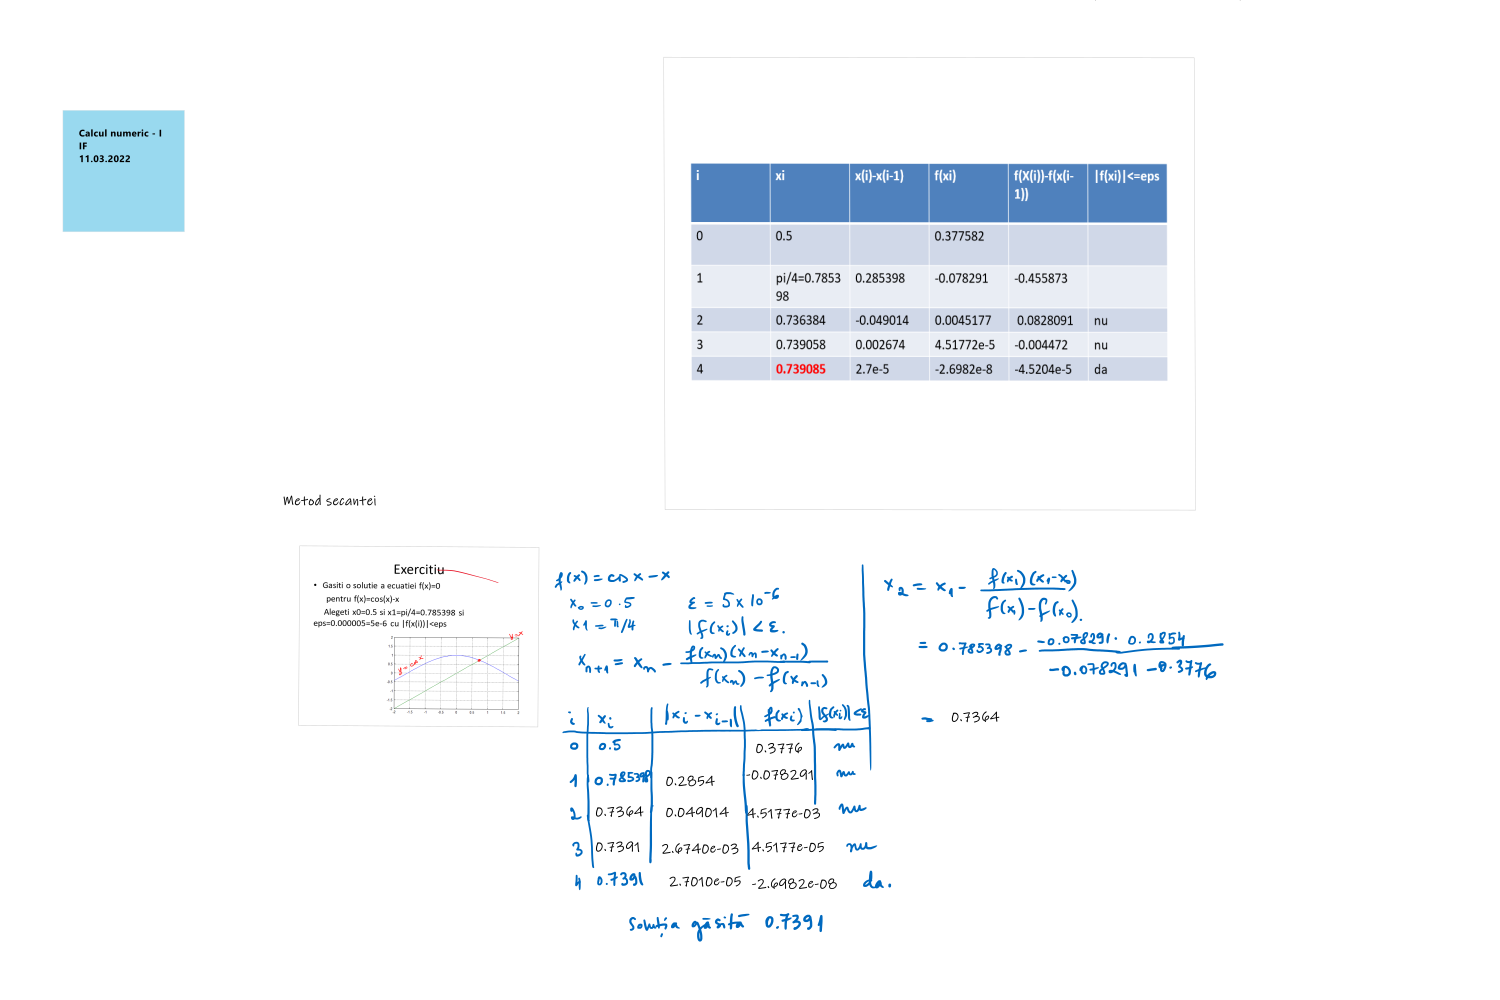 Calcul numeric - I
IF
11.03.2022
i xi x(i)-x(i-1) f(xi) f(X(i))-f(x(i-1)) |f(xi)|<=eps
0 0.5 0.377582
1 pi/4=0.785398 0.285398 -0.078291 -0.455873
2 0.736384 -0.049014 0.0045177 0.0828091 nu
3 0.739058 0.002674 4.51772e-5 -0.004472 nu
4 0.739085 2.7e-5 -2.6982e-8 -4.5204e-5 da
Metod secantei
Exercitiu
• Gasiti o solutie a ecuatiei f(x)=0
pentru f(x)=cos(x)-x
Alegeti x0=0.5 si x1=pi/4=0.785398 si
eps=0.000005=5e-6 cu |f(x(i))|<eps
y=x
y=cos x
f(x) = cos x - x
x₀ = 0.5 ε = 5x10⁻⁶
x1 = π/4 |f(xᵢ)| < ε.
xₙ₊₁ = xₙ - f(xₙ)(xₙ-xₙ₋₁) / f(xₙ) - f(xₙ₋₁)
i xᵢ |xᵢ - xᵢ₋₁| f(xᵢ) |f(xᵢ)|<ε
0 0.5 0.3776 nu
1 0.785398 0.2854 -0.078291 nu
2 0.7364 0.049014 4.5177e-03 nu
3 0.7391 2.6740e-03 4.5177e-05 nu
4 0.7391 2.7010e-05 -2.6982e-08 da.
Soluția găsită 0.7391
x₂ = x₁ - f(x₁)(x₁-x₀) / f(x₁)-f(x₀).
= 0.785398 - -0.078291 · 0.2854 / -0.078291 -0.3776
= 0.7364